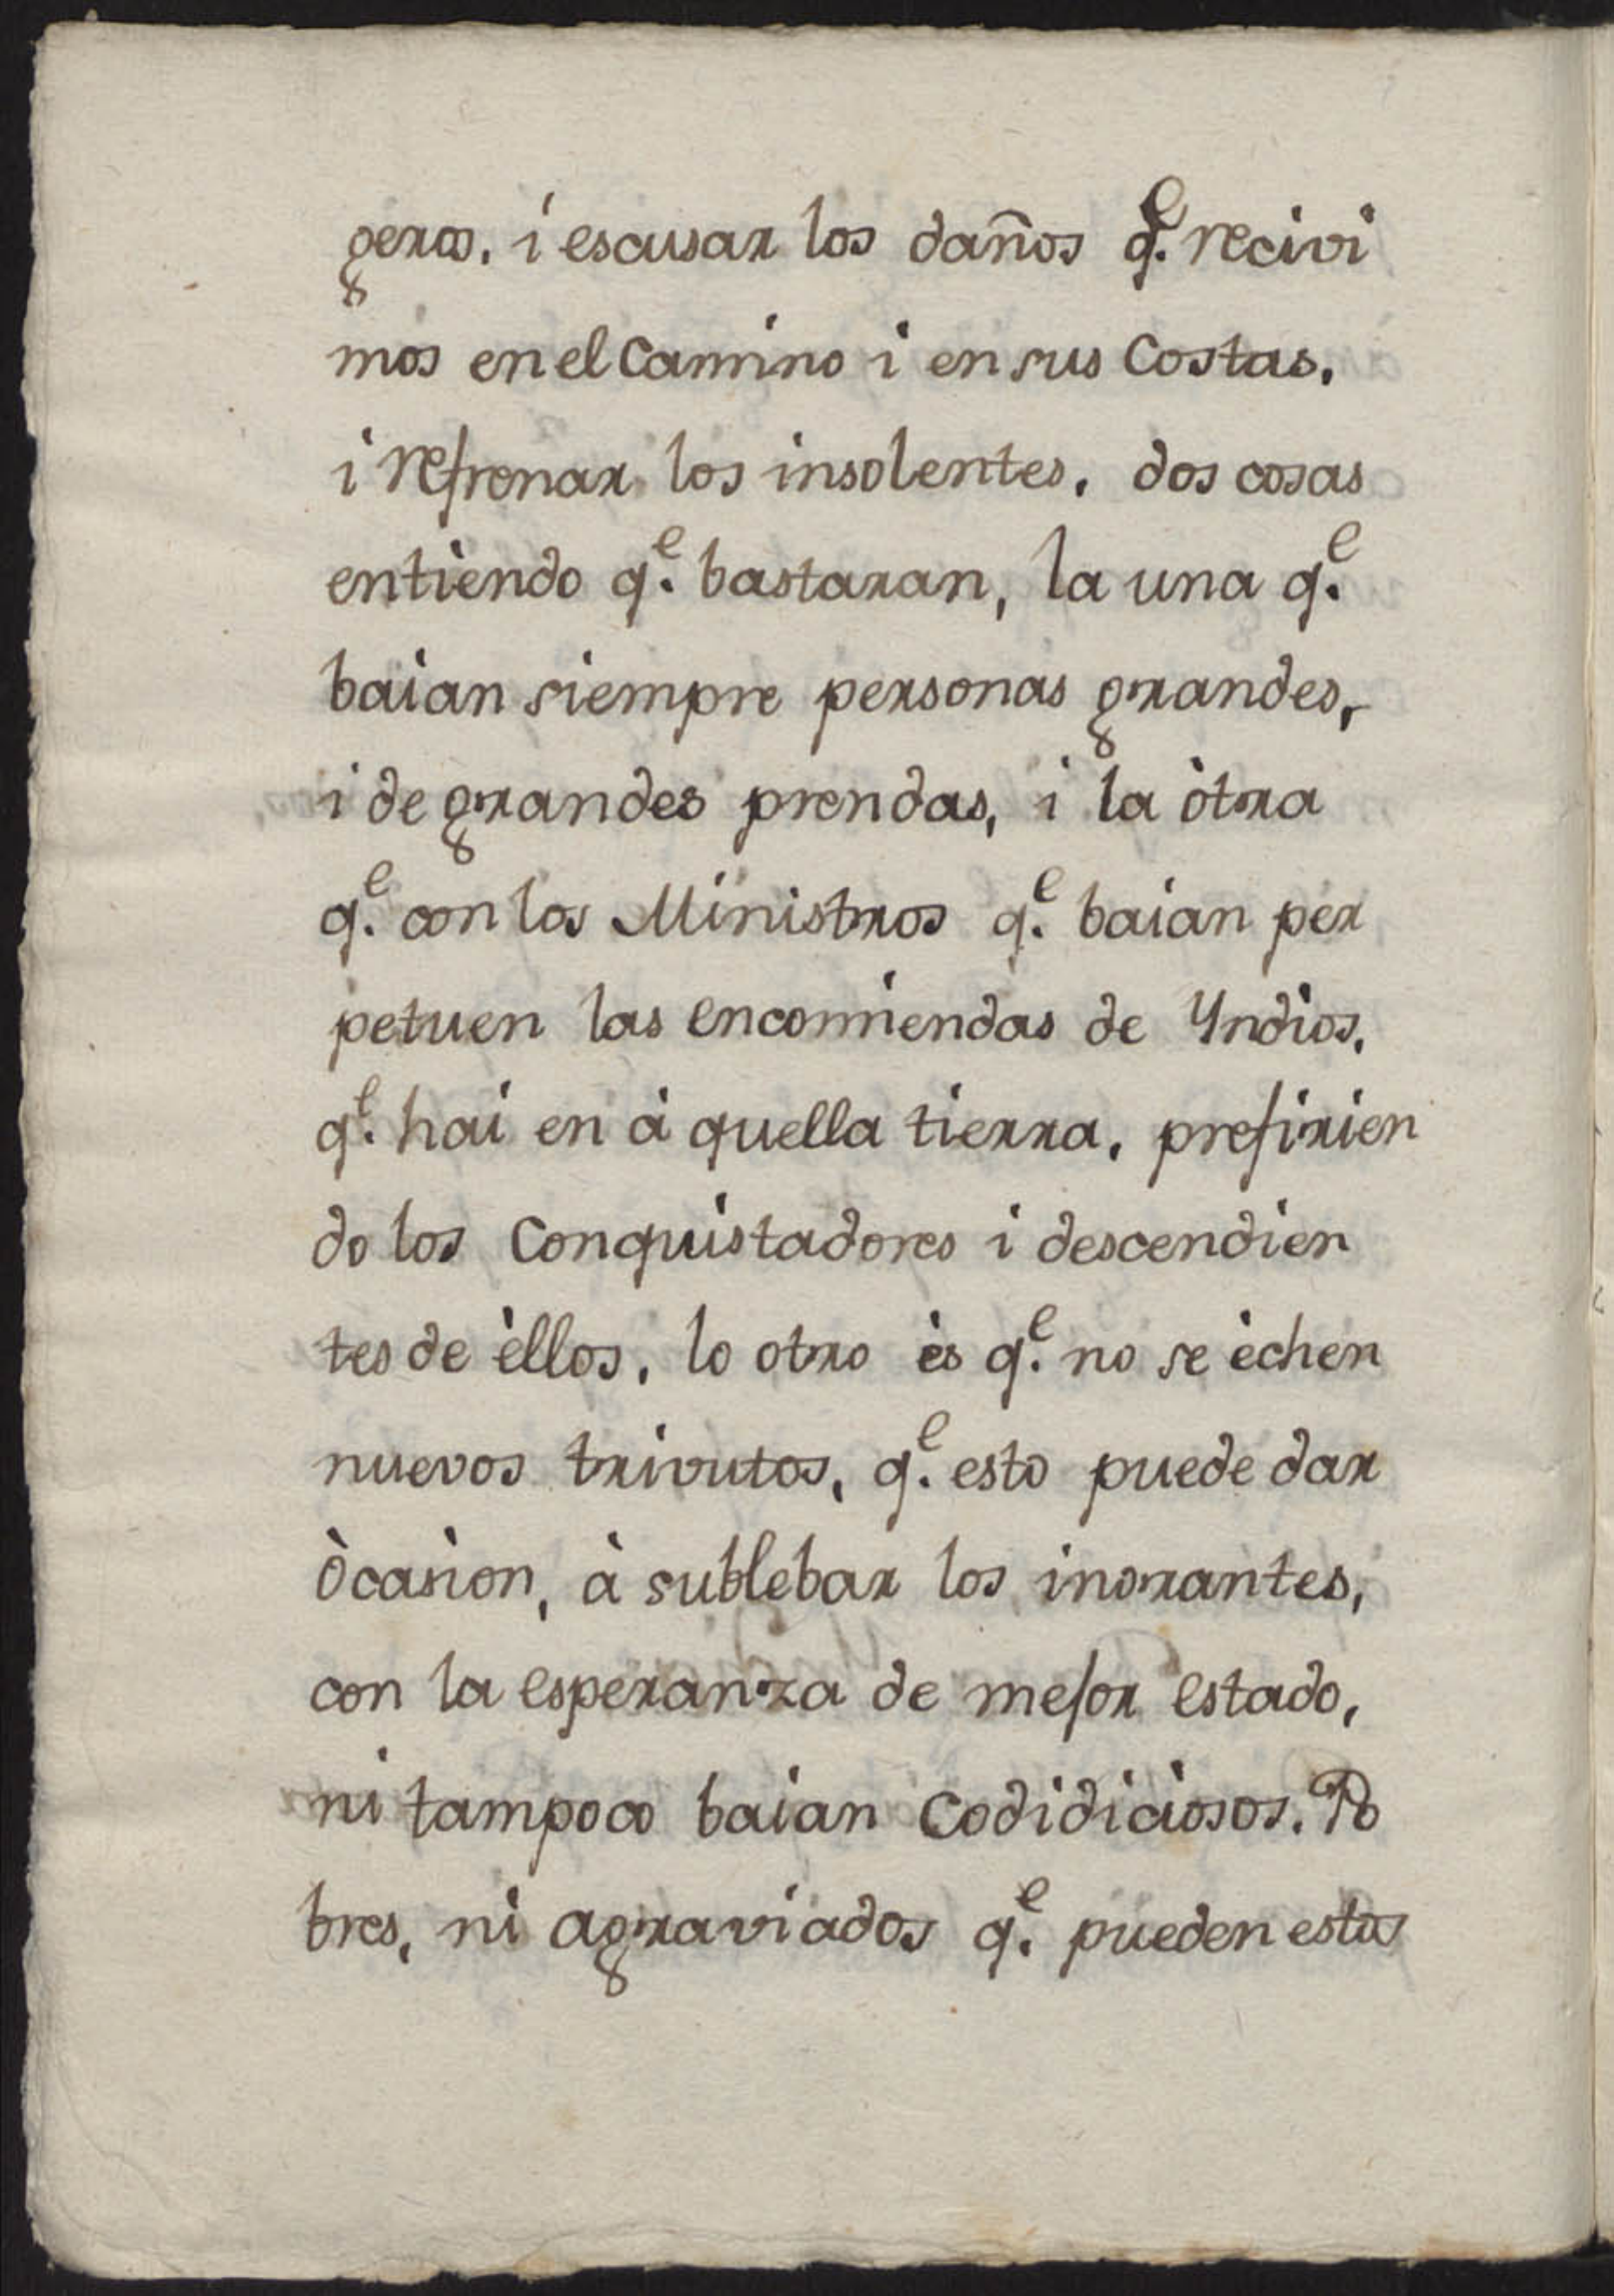 geros. i escusar los daños q.e recivi
mos en el Camino i en sus Costas.
i refrenar los insolentes. dos cosas
entiendo q.e bastaran, la una q.e
baian siempre personas grandes,
i de grandes prendas, i la òtra
q.e con los Ministros q.e baian per
petuen las encomiendas de Yndios.
q.e hai en à quella tierra. prefirien
do los Conquistadores i descendien
tes de èllos. lo otro ès q.e no se èchen
nuevos trivutos, q.e esto puede dar
òcasion, à sublebar los inorantes,
con la esperanza de mejor estado,
ni tampoco baian Codidiciosos. Po
bres, ni agraviados q.e pueden estos